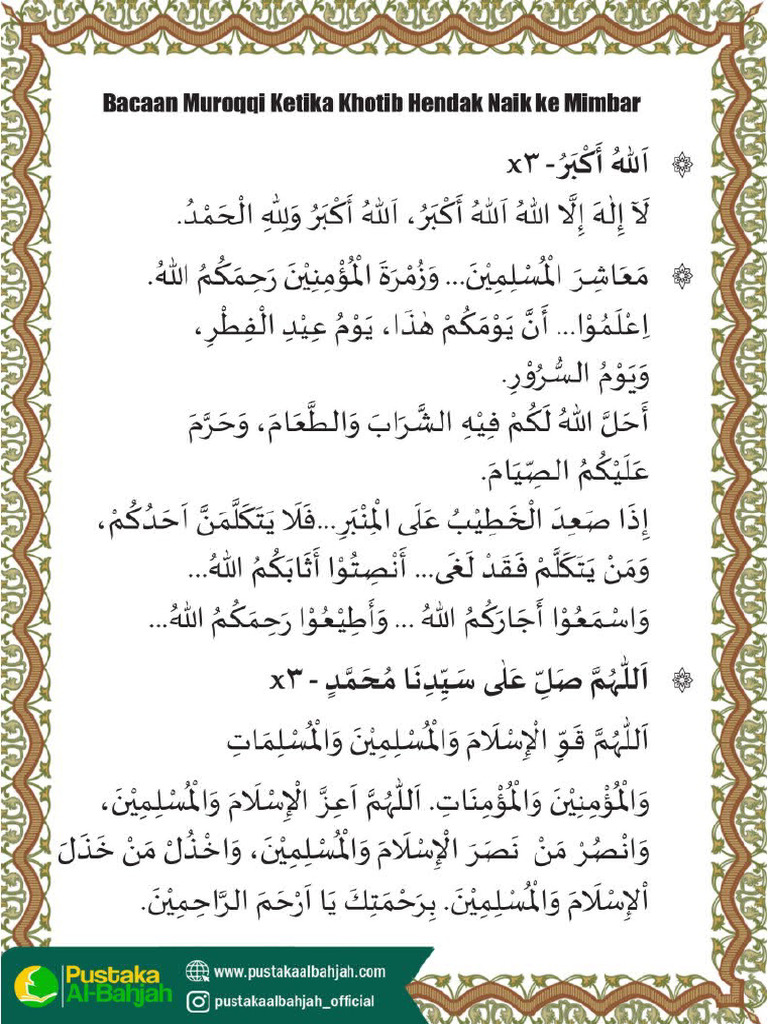 Bacaan Muroqqi Ketika Khotib Hendak Naik ke Mimbar
اَللهُ أَكْبَرُ - x٣
لَآ إِلٰهَ إِلَّا اللهُ اَللهُ أَكْبَرُ، اَللهُ أَكْبَرُ وَلِلهِ الْحَمْدُ.
مَعَاشِرَ الْمُسْلِمِيْنَ... وَزُمْرَةَ الْمُؤْمِنِيْنَ رَحِمَكُمُ اللهُ.
اِعْلَمُوْا... أَنَّ يَوْمَكُمْ هٰذَا، يَوْمُ عِيْدِ الْفِطْرِ،
وَيَوْمُ السُّرُوْرِ.
أَحَلَّ اللهُ لَكُمْ فِيْهِ الشَّرَابَ وَالطَّعَامَ، وَحَرَّمَ
عَلَيْكُمُ الصِّيَامَ.
إِذَا صَعِدَ الْخَطِيْبُ عَلَى الْمِنْبَرِ...فَلَا يَتَكَلَّمَنَّ اَحَدُكُمْ،
وَمَنْ يَتَكَلَّمْ فَقَدْ لَغَى... أَنْصِتُوْا أَثَابَكُمُ اللهُ...
وَاسْمَعُوْا أَجَارَكُمُ اللهُ ... وَأَطِيْعُوْا رَحِمَكُمُ اللهُ...
اَللّٰهُمَّ صَلِّ عَلٰى سَيِّدِنَا مُحَمَّدٍ - x٣
اَللّٰهُمَّ قَوِّ الْإِسْلَامَ وَالْمُسْلِمِيْنَ وَالْمُسْلِمَاتِ
وَالْمُؤْمِنِيْنَ وَالْمُؤْمِنَاتِ. اَللّٰهُمَّ اَعِزَّ الْإِسْلَامَ وَالْمُسْلِمِيْنَ،
وَانْصُرْ مَنْ نَصَرَ الْإِسْلَامَ وَالْمُسْلِمِيْنَ، وَاخْذُلْ مَنْ خَذَلَ
اْلإِسْلَامَ وَالْمُسْلِمِيْنَ. بِرَحْمَتِكَ يَا اَرْحَمَ الرَّاحِمِيْنَ.
Pustaka
Al-Bahjah
www.pustakaalbahjah.com
pustakaalbahjah_official